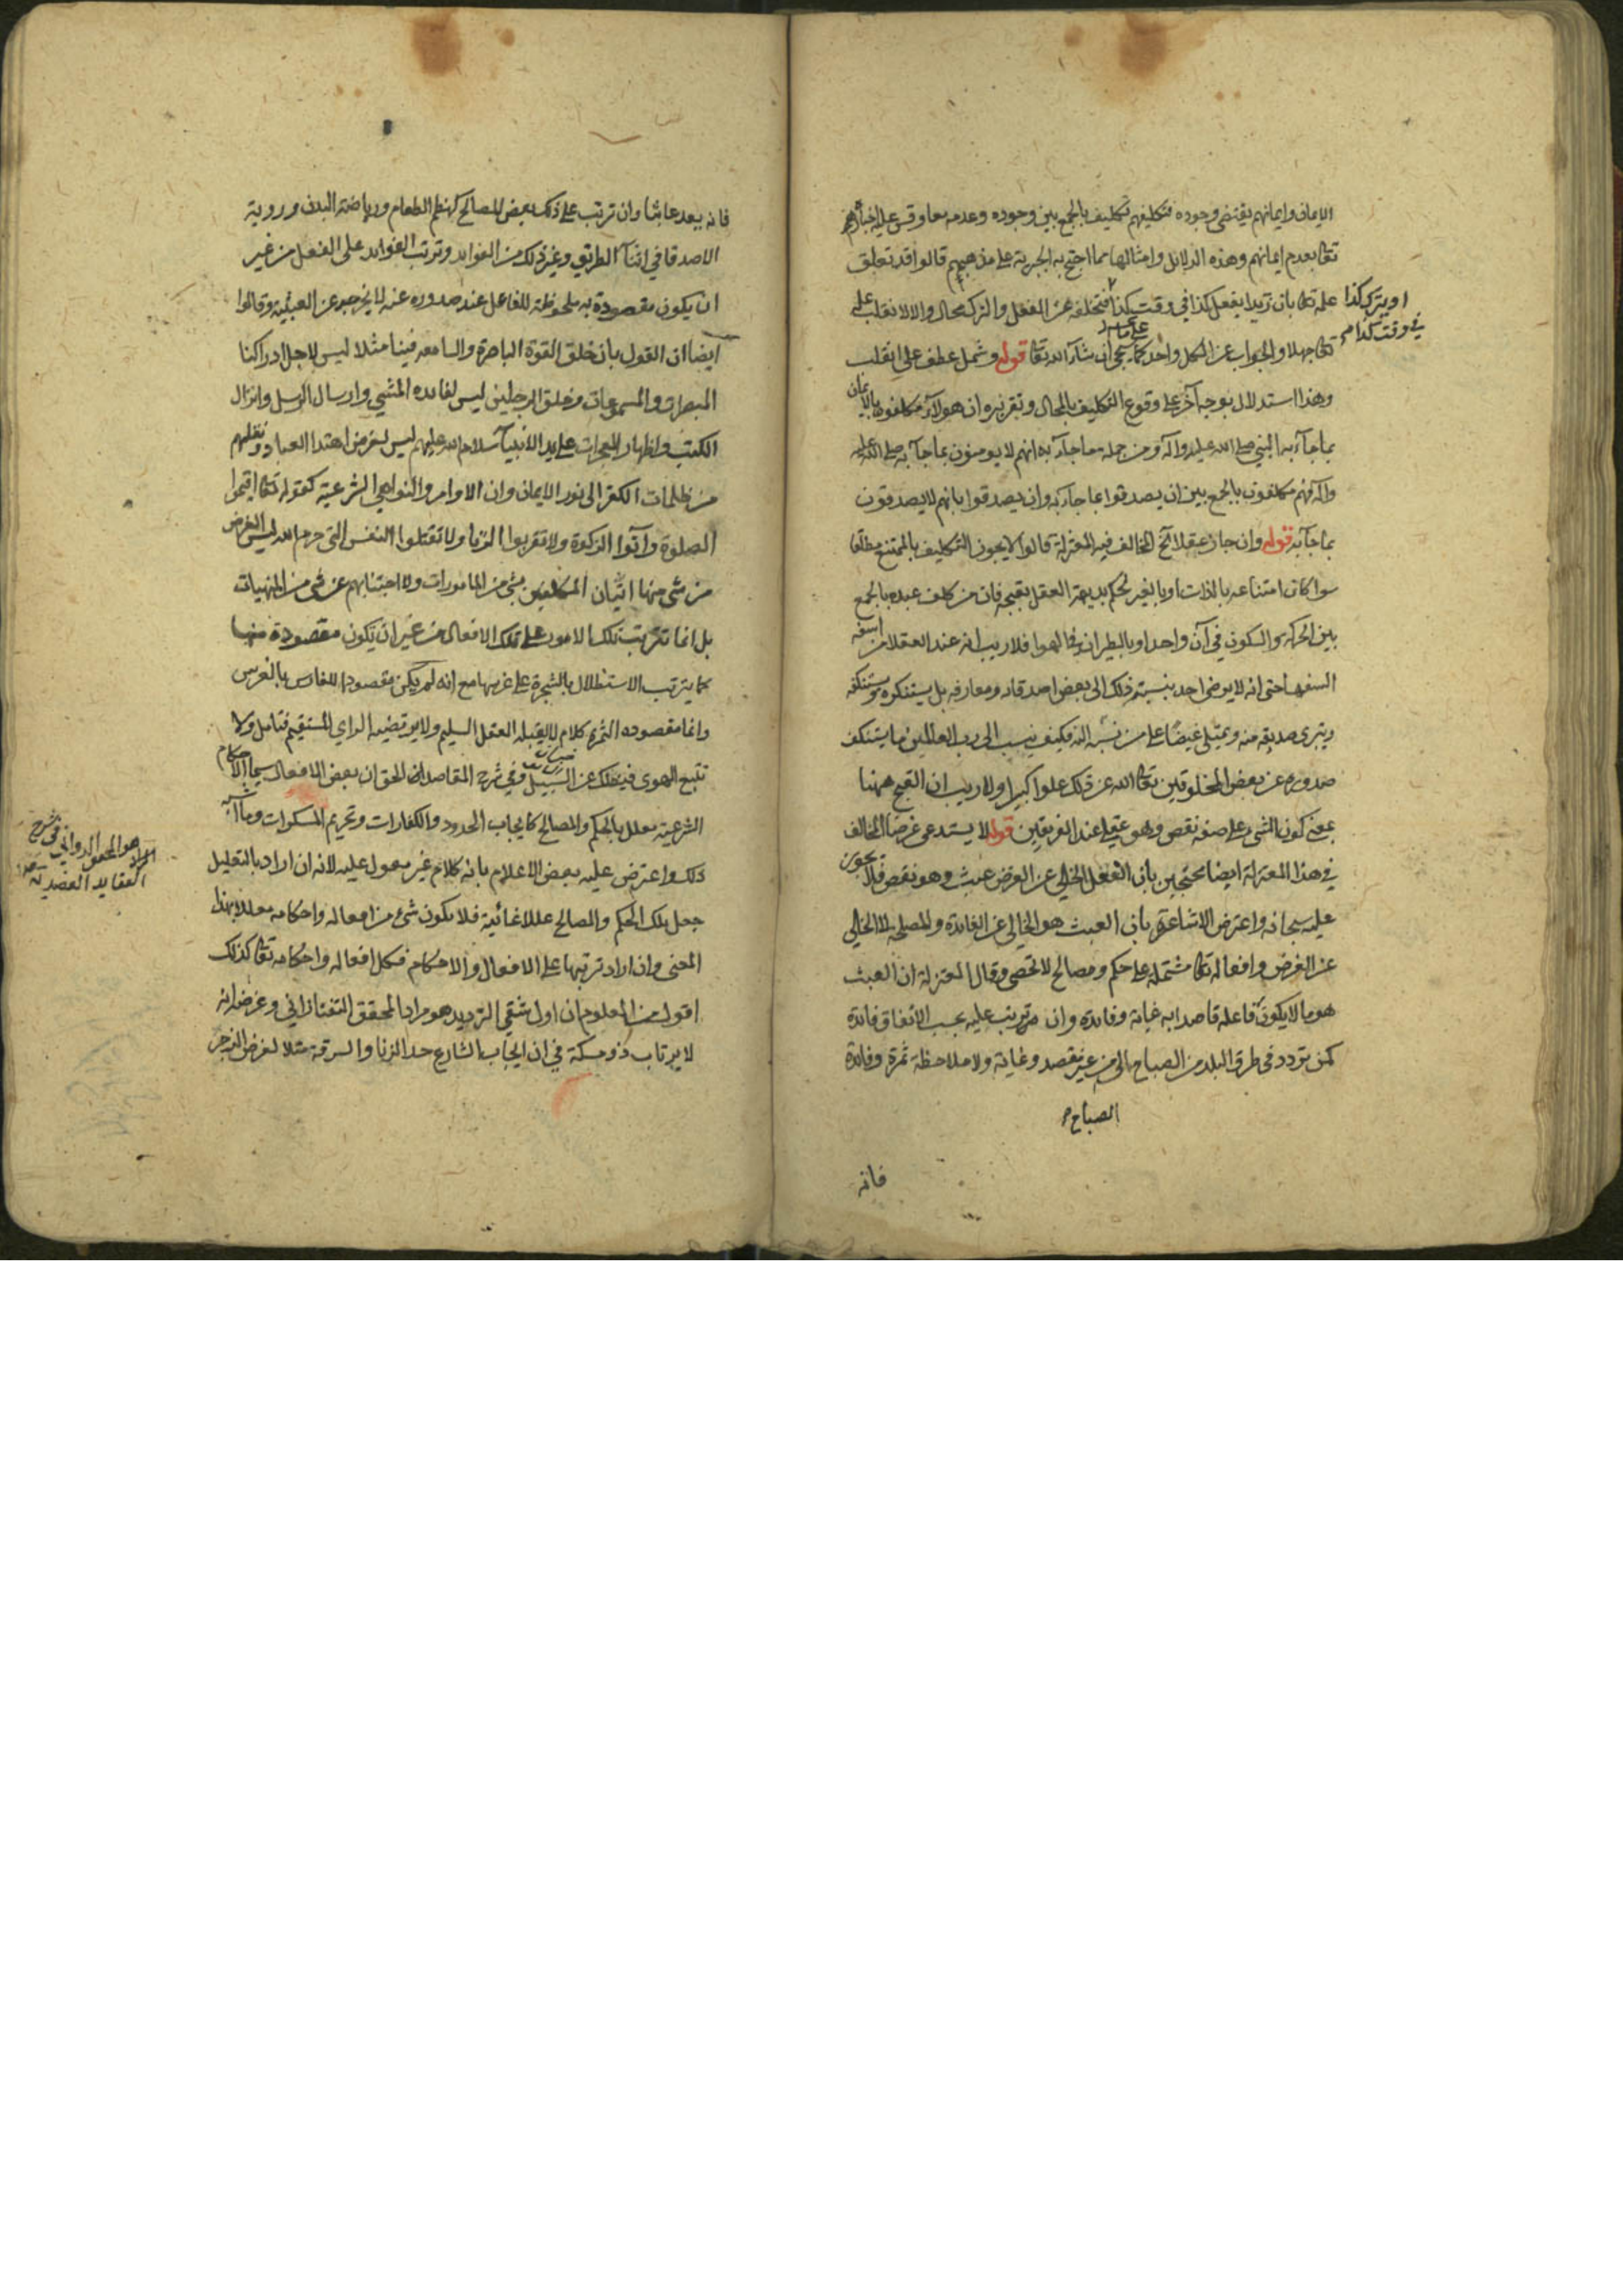 الايمان وايمانهم يقتضى وجوده فتكليفهم تكليف بالجمع بين وجوده وعدمه معا وقس عليه اخباره
تعالى بعدم ايمانهم وهذه الدلائل وامثالها مما احتج به الجبرية على مذهبهم قالوا قد تعلق
علمه تعالى بان زيدا يفعل كذا في وقت كذا فتخلفه عن الفعل والترك محال والا لانقلب علمه
او يترك كذا
في وقت كذا م
تعالى جهلا والجواب عن الكل واحد كما سيجئ ان شاء الله تعالى قوله وشمل عطف على انقلب
وهذا استدلال بوجه آخر على وقوع التكليف بالمحال وتقريره ان هولاء مكلفون بالايمان
بما جاء به النبي صلى الله عليه وآله ومن جملة ما جاء به انهم لا يومنون بما جاء به صلى الله عليه
وآله فهم مكلفون بالجمع بين ان يصدقوا بما جاء به وان يصدقوا بانهم لا يصدقون
بما جاء به قوله وان جاز عقلا آلخ المخالف فيه المعتزلة قالوا لا يجوز التكليف بالممتنع مطلقا
سوا كان امتناعه بالذات او بالغير لحكم بديهة العقل بقبحه فان من كلف عبده بالجمع
بين الحركة والسكون في آن واحد او بالطيران في الهوا فلا ريب انه عند العقلا من اسفه
السفها حتى انه لا يرضى احد بنسبة ذلك الى بعض اصدقائه ومعارفه بل يستنكره ويستنكفه
ويتبرى صديقه منه ويمتلى غيضا على من نسبه اليه فكيف ينسب الى رب العالمين ما يستنكف
صدوره عن بعض المخلوقين تعالى الله عن ذلك علوا كبيرا ولا ريب ان القبح ههنا
بمعنى كون الشئ على صفة نقص وهو عقلى عند الفريقين قوله لا يستدعى غرضا المخالف
في هذا المعتزلة ايضا محتجين بان الفعل الخالي عن الغرض عبث وهو نقص فلا يجوز
عليه سبحانه واعترض الاشاعرة بان العبث هو الخالي عن الفائدة والمصلحة لا الخالي
عن الغرض وافعاله تعالى مشتملة على حكم ومصالح لا تحصى وقال المعتزلة ان العبث
هو ما لا يكون فاعله قاصدا به غاية وفائدة وان ترتب عليه بحسب الاتفاق فائدة
كمن تردد في طرق البلد من الصباح الى من غير قصد وغاية ولا ملاحظة ثمرة وفائدة
الصباح م
فانه
فانه يعد عابثا وان ترتب على ذلك بعض المصالح كهضم الطعام ورياضة البدن ورؤية
الاصدقا في اثنآ الطريق وغير ذلك من الفوايد وترتب الفوايد على الفعل من غير
ان يكون مقصودة به ملحوظة للفاعل عند صدوره عنه لا يخرجه عن العبثية وقالوا
ايضا ان القول بان خلق القوة الباصرة والسامعه فينا مثلا ليس لاجل ادراكنا
المبصرات والمسموعات وخلق الرجلين ليس لفائده المشي وارسال الرسل وانزال
الكتب واظهار المعجزات على يد الانبيآ سلام الله عليهم ليس لغرض اهتدا العباد ونقلهم
من ظلمات الكفر الى نور الايمان وان الاوامر والنواهي الشرعية كقوله تعالى اقيموا
الصلوة وآتوا الزكوة ولا تقربوا الزنا ولا تقتلوا النفس التى حرم الله ليس الغرض
من شئ منها اتيان المكلفين بشئ من المامورات ولا اجتنابهم عن شئ من المنهيات
بل انما تترتب تلك الامور على تلك الافعال من غير ان يكون مقصودة منها
كما يترتب الاستظلال بالشجرة على غرسها مع انه لم يكن مقصودا للغارس بالغرس
وانما مقصوده الثمرة كلام لا يقبله العقل السليم ولا يرتضيه الراي المستقيم فتامل ولا
تتبع الهوى فيضلك عن السبيل وفي شرح المقاصد ان الحق ان بعض الافعال سيما الاحكام
الشرعية معلل بالحكم والمصالح كايجاب الحدود والكفارات وتحريم المسكرات وما اشبه
ذلك واعترض عليه بعض الاعلام بانه كلام غير معول عليه لانه ان اراد بالتعليل
المراد هو المحقق الدواني في شرح
العقايد العضدية منه
جعل تلك الحكم والمصالح عللا غائية فلا يكون شئ من افعاله واحكامه معللا بهذا
المعنى وان اراد ترتبها على الافعال والاحكام فكل افعاله واحكامه تعالى كذلك
اقول من المعلوم ان اول شقى الترديد هو مراد المحقق التفتازاني وغرضه انه
لا يرتاب ذو مسكة في ان ايجاب الشارع حد الزنا والسرقة مثلا لغرض الزجر